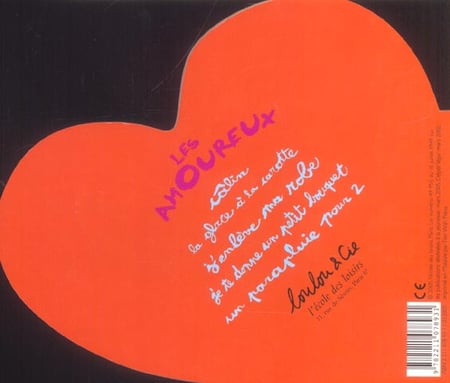 LES
AMOUREUX
câlin
la glace à la carotte
j'enlève ma robe
je te donne un petit bouquet
un parapluie pour 2
loulou & Cie
l'école des loisirs
11, rue de Sèvres, Paris 6e
CE
9 782211 078931